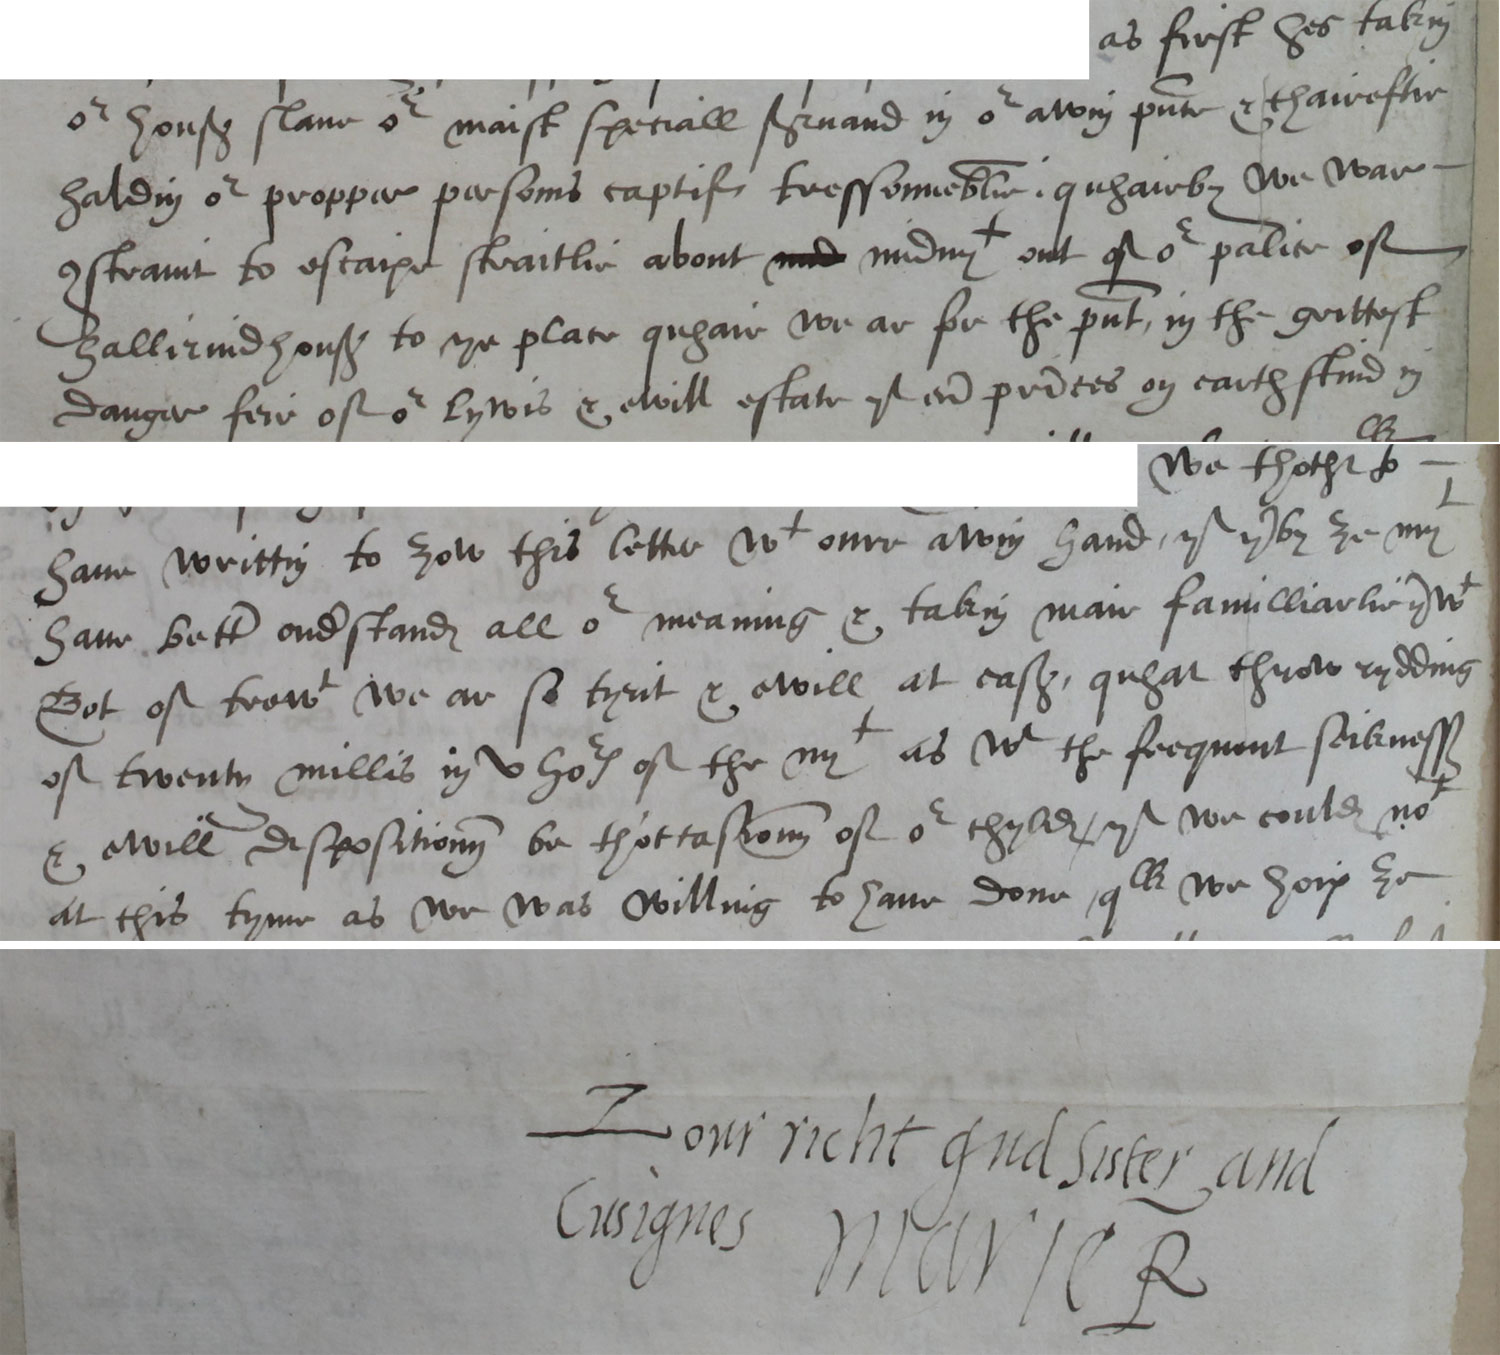 as first hes takin
oʳ houß slane oʳ maist speciall servand in oʳ awin pñte & thaireftir
haldin oʳ propper personis captifs tressonneblie, quhairby we war
ꝯstranit to escaipe straitlie about midnyᵗ out of oʳ palice of
halliruidhouß to ye place quhair we ar for the pñt, in the grittest
danger feir of oʳ lyvis & ewill estate yᵗ eũ prĩces on earth stuid in
We thotht to
haue writtin to ȝow this letter wᵗ oure awin hand, yᵗ yʳby ȝe myᵗ
haue bettʳ ondʳstand all oʳ meaning & takin mair familliarlie yʳwᵗ
Bot of trewᵗ we ar so tyrit & ewill at eaß, quhat throw rydding
of twenty millis in v hoʳs of the nyᵗ as wᵗ the frequent seikness
& ewill dispositioun be th'occasioun of oʳ chyld, yᵗ we could noᵗ
at this tyme as we was willing to haue done, qlk we hoip ȝe
Ȝour richt gud sister and
Cusignes Marie R